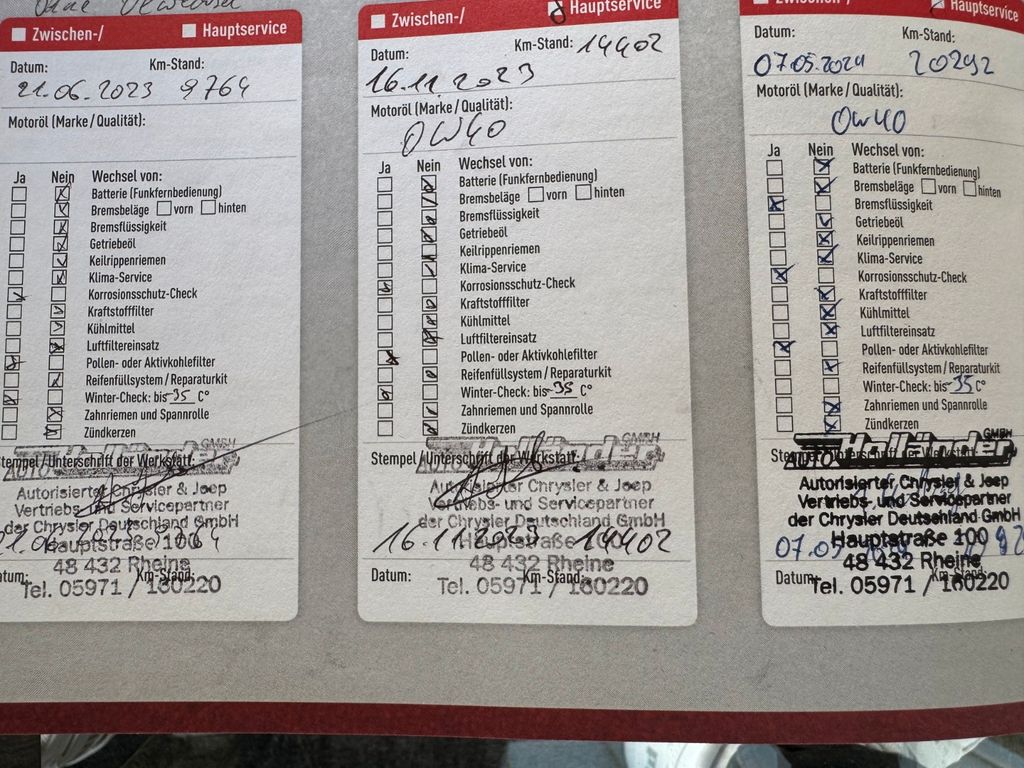 Ohne
Zwischen-/ Hauptservice
Datum: Km-Stand:
21.06.2023 9764
Motoröl (Marke / Qualität):
Ja Nein Wechsel von:
Batterie (Funkfernbedienung)
Bremsbeläge vorn hinten
Bremsflüssigkeit
Getriebeöl
Keilrippenriemen
Klima-Service
Korrosionsschutz-Check
Kraftstofffilter
Kühlmittel
Luftfiltereinsatz
Pollen- oder Aktivkohlefilter
Reifenfüllsystem / Reparaturkit
Winter-Check: bis -35 C°
Zahnriemen und Spannrolle
Zündkerzen
Stempel / Unterschrift der Werkstatt:
AUTO Holländer GMBH
Autorisierter Chrysler & Jeep
Vertriebs- und Servicepartner
der Chrysler Deutschland GmbH
Hauptstraße 100
48 432 Rheine
Datum: Km-Stand:
Tel. 05971 / 160220
Zwischen-/ Hauptservice
Datum: Km-Stand: 14402
16.11.2023
Motoröl (Marke / Qualität):
0W40
Ja Nein Wechsel von:
Batterie (Funkfernbedienung)
Bremsbeläge vorn hinten
Bremsflüssigkeit
Getriebeöl
Keilrippenriemen
Klima-Service
Korrosionsschutz-Check
Kraftstofffilter
Kühlmittel
Luftfiltereinsatz
Pollen- oder Aktivkohlefilter
Reifenfüllsystem / Reparaturkit
Winter-Check: bis -35 C°
Zahnriemen und Spannrolle
Zündkerzen
Stempel / Unterschrift der Werkstatt:
AUTO Holländer GMBH
Autorisierter Chrysler & Jeep
Vertriebs- und Servicepartner
der Chrysler Deutschland GmbH
16.11.2023 14402
Hauptstraße 100
48 432 Rheine
Datum: Km-Stand:
Tel. 05971 / 160220
Zwischen-/ Hauptservice
Datum: Km-Stand:
07.05.2024 20292
Motoröl (Marke / Qualität):
0w40
Ja Nein Wechsel von:
Batterie (Funkfernbedienung)
Bremsbeläge vorn hinten
Bremsflüssigkeit
Getriebeöl
Keilrippenriemen
Klima-Service
Korrosionsschutz-Check
Kraftstofffilter
Kühlmittel
Luftfiltereinsatz
Pollen- oder Aktivkohlefilter
Reifenfüllsystem / Reparaturkit
Winter-Check: bis -35 C°
Zahnriemen und Spannrolle
Zündkerzen
AUTO Holländer GMBH
Autorisierter Chrysler & Jeep
Vertriebs- und Servicepartner
der Chrysler Deutschland GmbH
Hauptstraße 100
48 432 Rheine
Datum: Km-Stand:
Tel. 05971 / 160220